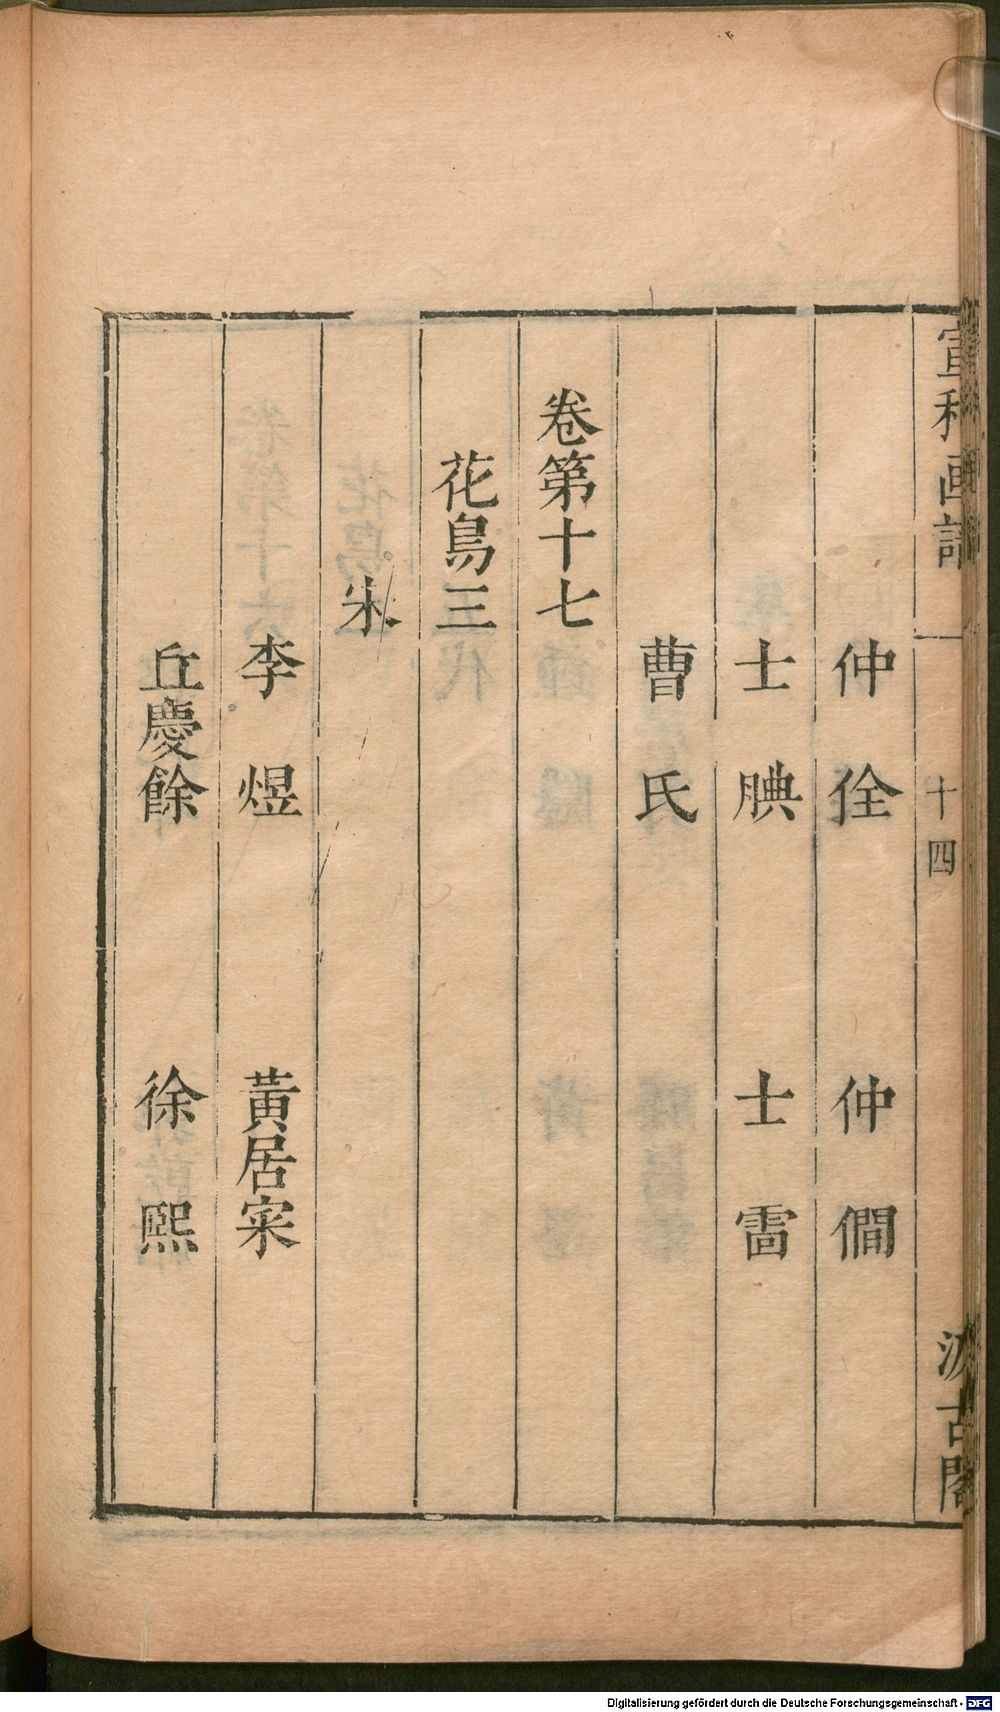 宣和画譜 十四 汲古閣
仲佺 仲僩
士腆 士雷
曹氏
卷第十七
花鳥三
宋
李煜 黃居寀
丘慶餘 徐熙
Digitalisierung gefördert durch die Deutsche Forschungsgemeinschaft - DFG